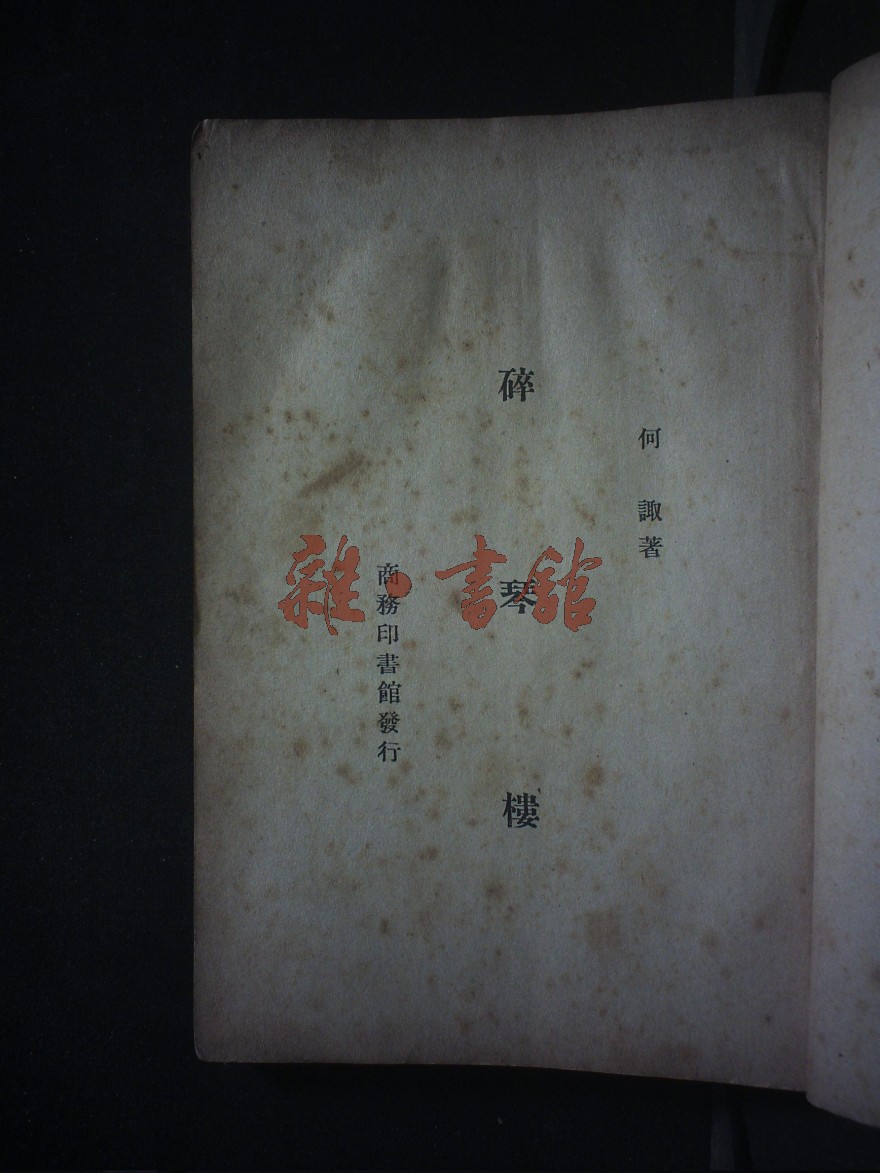 何諏著
碎琴樓
商務印書館發行
雜·書館